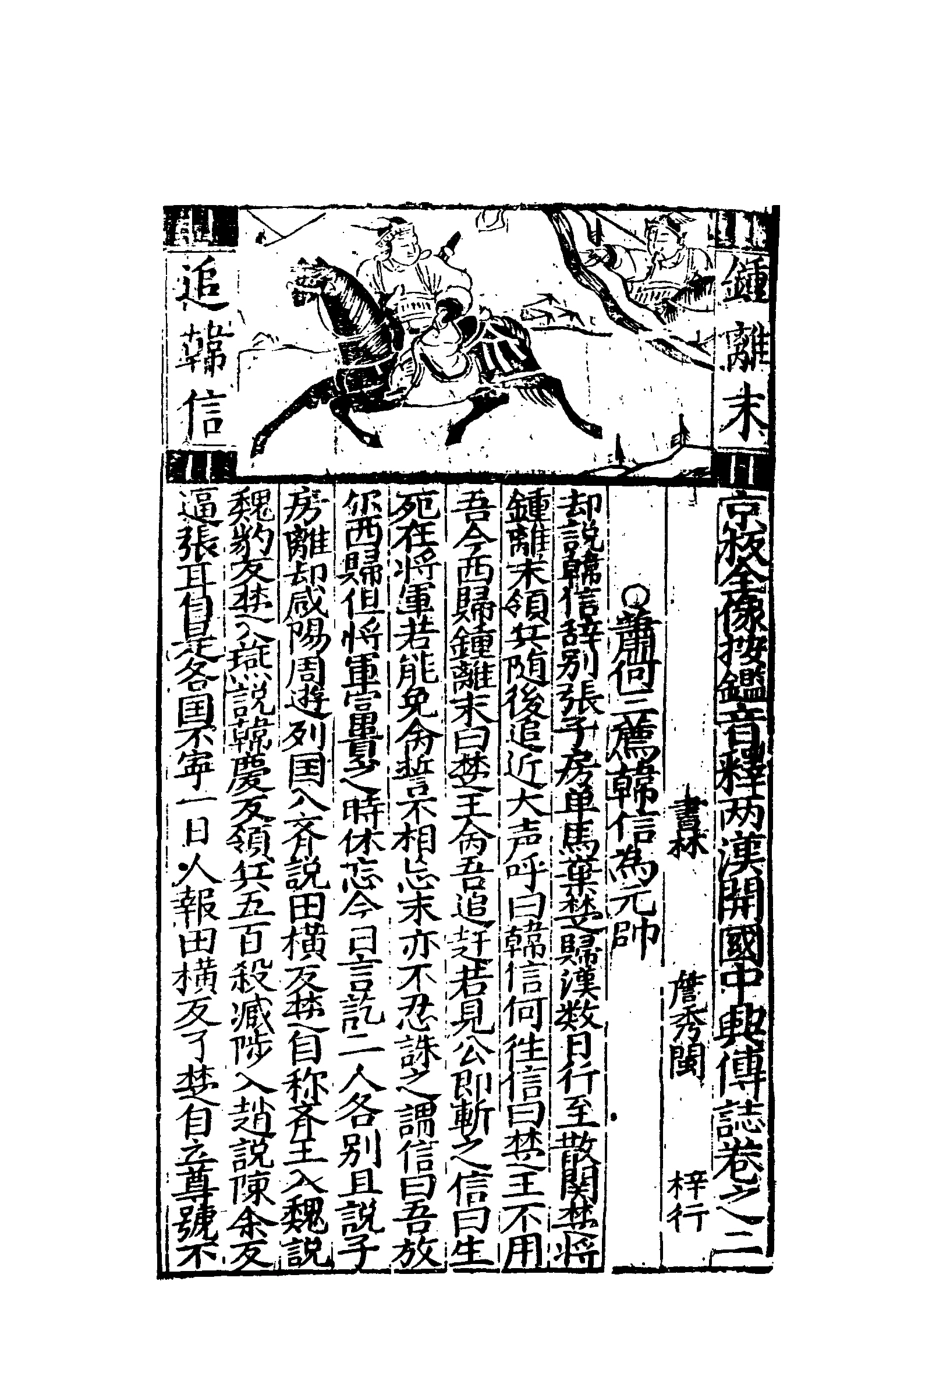 鍾離末
追韓信
京板全像按鑑音釋两漢開國中興傳誌卷之二
書林 詹秀閩 梓行
○蕭何三薦韓信為元帥
却説韓信辞别張子房单馬棄楚歸漢数日行至散関楚将
鍾離末領兵随後追近大声呼曰韓信何徃信曰楚王不用
吾今西歸鍾離末曰楚王命吾追赶若見公即斬之信曰生
死在将軍若能免命誓不相忘末亦不忍誅之謂信曰吾放
你西歸但将軍冨貴之時休忘今日言訖二人各别且説子
房離却咸陽周遊列国入齐説田横反楚自称齐王入魏説
魏豹反楚入燕説韓慶反領兵五百殺臧陟入趙説陳余反
逼張耳自是各国不寧一日人報田横反了楚自立尊號不